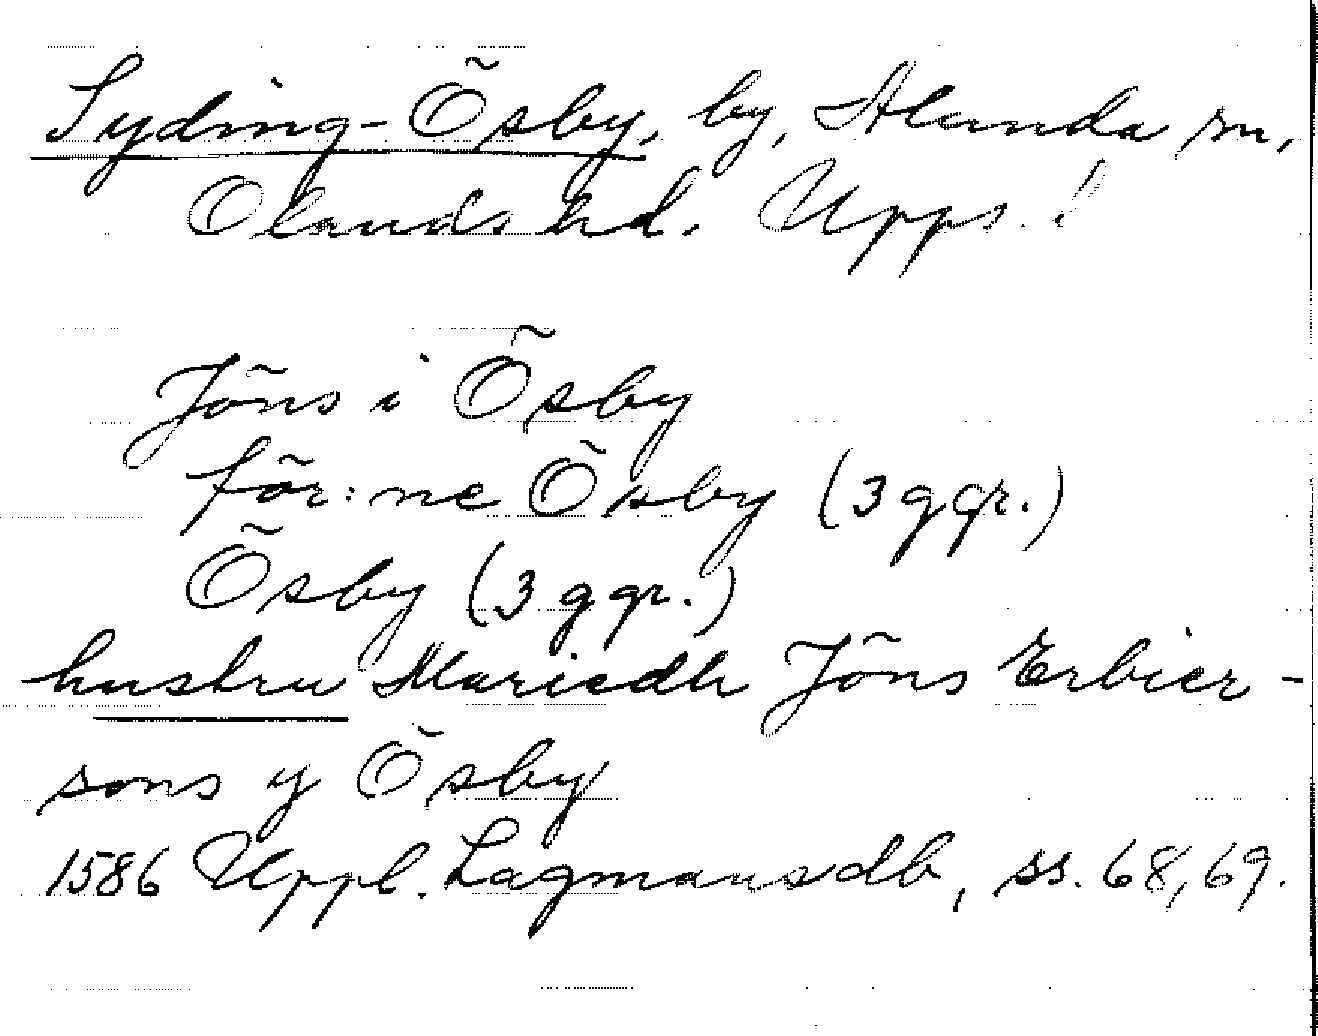 Syding-Ösby, by, Alunda sn,
Olands hd. Upps. l
Jöns i Ösby
för:ne Ösby (3 ggr.)
Ösby (3 ggr.)
hustru Mariedh Jöns Erbier-
sons y Ösby
1586 Uppl. Lagmansdb, ss. 68, 69.